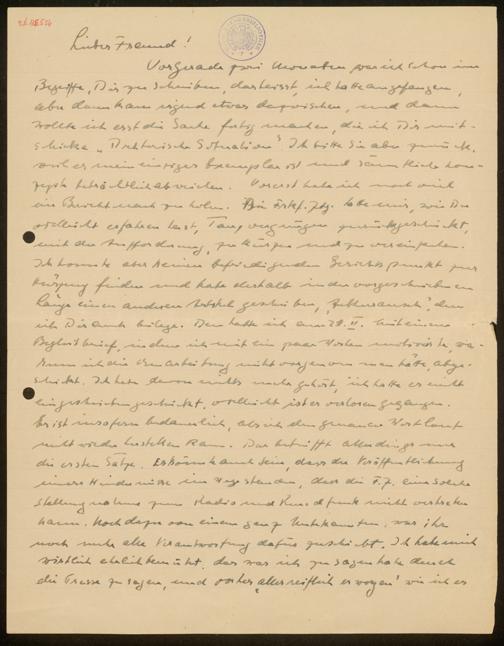 Lieber Freund!
Vorgerade zwei Monaten war ich schon im
Begriffe, Dir zu schreiben, das heisst, ich hatte angefangen,
aber dann kam irgend etwas dazwischen, und dann
wollte ich erst die Sache fertig machen, die ich Dir mit-
schicke „Dichterische Situation". Ich bitte Sie aber zurück,
weil es mein einziges Exemplar ist und sämtliche Kon-
zepte beträchtlich abweichen. Vorerst habe ich noch viel
ein Bericht nach zu holen. Die Frkf. Ztg. habe mir, wie Du
vielleicht erfahren hast, zurückgeschickt,
mit der Aufforderung, zu kürzen und zu vereinfachen.
Ich konnte aber keinen befriedigenden Gesichtspunkt zur
Kürzung finden und habe deshalb in der vorgeschriebenen
Länge einen anderen Artikel geschrieben, den
ich Dir auch beilege. Den hatte ich am II. mit einem
Begleitbrief, in dem ich mit ein paar Worten motivierte, wa-
rum ich die Umarbeitung nicht vorgenommen hätte, abge-
schickt. Ich habe davon nichts mehr gehört, ich hatte es nicht
eingeschrieben geschickt, vielleicht ist er verloren gegangen.
Es ist insofern bedauerlich, als ich den genauen Wortlaut
nicht wieder herstellen kann. Das betrifft allerdings nur
die ersten Sätze. Es könnte auch sein, dass der Veröffentlichung
innere Hindernisse im Wege standen, dass die F.Z. eine solche
Stellungnahme zum Radio und Rundfunk nicht vertreten
kann. Noch dazu von einem ganz Unbekannten, was ihr
noch mehr alle Verantwortung dafür zuschiebt. Ich habe mich
wirklich ehrlich bemüht, das was ich zu sagen habe durch
die Presse zu sagen, und vorher „alles reiflich erwogen" wie ich es